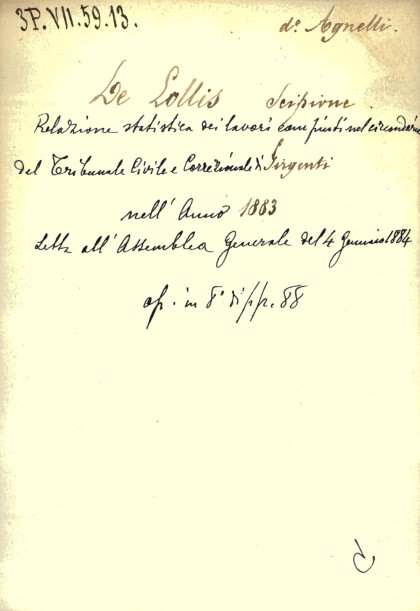 3P.VII.59.13.
do Agnelli.
De Lollis Scipione.
Relazione statistica dei lavori compiuti nel circondario
del Tribunale Civile e Correzionale di Girgenti
nell' Anno 1883
Letta all' Assemblea Generale del 4 Gennaio 1884
op. in 8° di pp. 88